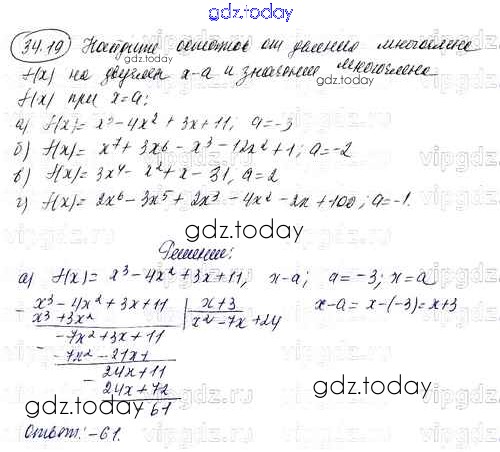 gdz.today
34.19 Найдите остаток от деления многочлена
f(x) на двучлен x-a и значение многочлена
f(x) при x=a;
а) f(x)= x³-4x²+3x+11; a=-3
б) f(x)= x⁷+3x⁶-x³-12x²+1; a=-2
в) f(x)= 3x⁴-x²+x-31, a=2
г) f(x)= 2x⁶-3x⁵+2x³-4x²-2x+100; a=-1.
gdz.today
Решение:
а) f(x)= x³-4x²+3x+11, x-a; a=-3; x=a
x³-4x²+3x+11 | x+3 x-a=x-(-3)=x+3
x³+3x² x²-7x+24
-7x²+3x+11
-7x²-21x
24x+11
24x+72
-61
gdz.today
gdz.today
Ответ: -61.